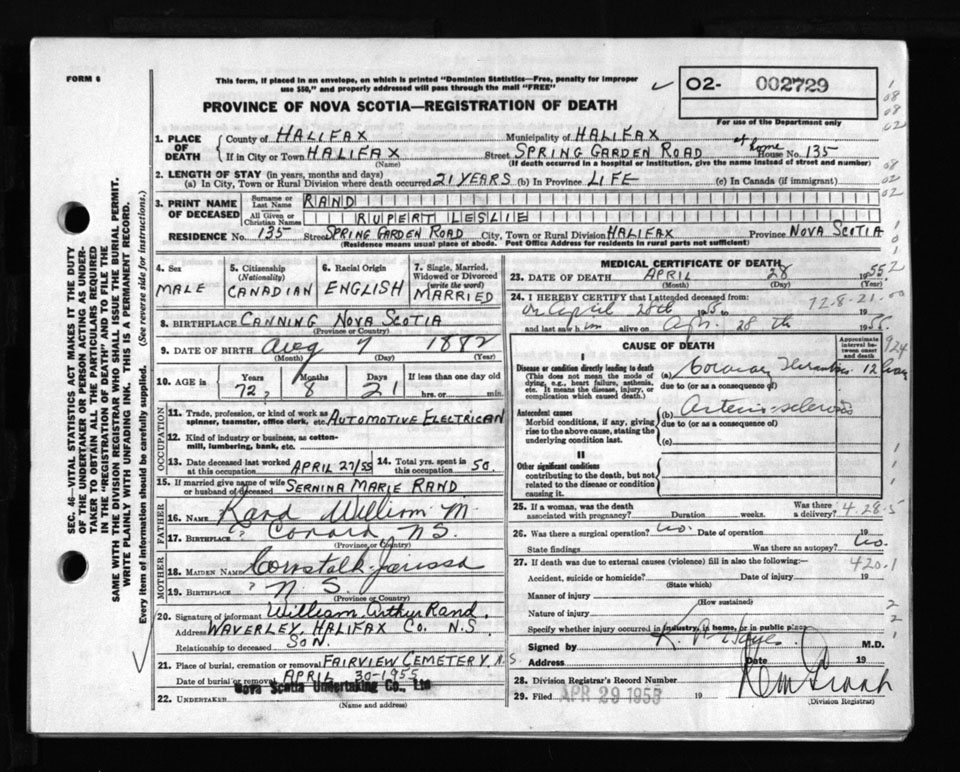 FORM 6
This form, if placed in an envelope, on which is printed "Dominion Statistics—Free, penalty for improper
use $50," and properly addressed will pass through the mail "FREE"
PROVINCE OF NOVA SCOTIA—REGISTRATION OF DEATH
02- 002729
For use of the Department only
1. PLACE OF DEATH
County of HALIFAX Municipality of HALIFAX
If in City or Town HALIFAX Street SPRING GARDEN ROAD at home House No. 135
(Name) (If death occurred in a hospital or institution, give the name instead of street and number)
2. LENGTH OF STAY (in years, months and days)
(a) In City, Town or Rural Division where death occurred 21 YEARS (b) In Province LIFE (c) In Canada (if immigrant)
3. PRINT NAME OF DECEASED
Surname or Last Name RAND
All Given or Christian Names RUPERT LESLIE
RESIDENCE No. 135 Street SPRING GARDEN ROAD City, Town or Rural Division HALIFAX Province NOVA SCOTIA
(Residence means usual place of abode. Post Office Address for residents in rural parts not sufficient)
4. Sex MALE
5. Citizenship (Nationality) CANADIAN
6. Racial Origin ENGLISH
7. Single, Married, Widowed or Divorced (write the word) MARRIED
8. BIRTHPLACE CANNING NOVA SCOTIA
(Province or Country)
9. DATE OF BIRTH Aug 7 1882
(Month) (Day) (Year)
10. AGE in Years Months Days If less than one day old
72 8 21 hrs. or min.
OCCUPATION
11. Trade, profession, or kind of work as spinner, teamster, office clerk, etc. AUTOMOTIVE ELECTRICAN
12. Kind of industry or business, as cotton-mill, lumbering, bank, etc.
13. Date deceased last worked at this occupation APRIL 27/55
14. Total yrs. spent in this occupation 50.
15. If married give name of wife or husband of deceased SERNINA MARIE RAND
FATHER
16. NAME Rand William M.
17. BIRTHPLACE ? N S.
(Province or Country)
MOTHER
18. MAIDEN NAME Comstalk
19. BIRTHPLACE ? N. S.
(Province or Country)
20. Signature of informant William Arthur Rand.
Address WAVERLEY HALIFAX Co. N.S.
Relationship to deceased SON.
21. Place of burial, cremation or removal FAIRVIEW CEMETERY. N.S.
Date of burial or removal APRIL 30-1955
Nova Scotia Undertaking Co., Ltd
22. UNDERTAKER
(Name and address)
MEDICAL CERTIFICATE OF DEATH
23. DATE OF DEATH APRIL 28 1955
(Month) (Day) (Year)
24. I HEREBY CERTIFY that I attended deceased from: 72-8-21-00
on April 28th 1955 to 19
and last saw him alive on Apr. 28th 1955.
CAUSE OF DEATH
Approximate interval between onset and death
I
Disease or condition directly leading to death
(This does not mean the mode of dying, e.g., heart failure, asthenia, etc. It means the disease, injury, or complication which caused death.)
(a) Coronary Thrombosis 12 hrs
due to (or as a consequence of)
Antecedent causes
Morbid conditions, if any, giving rise to the above cause, stating the underlying condition last.
(b) Arterio-sclerosis
due to (or as a consequence of)
(c)
II
Other significant conditions
contributing to the death, but not related to the disease or condition causing it.
25. If a woman, was the death associated with pregnancy? Duration weeks. Was there a delivery? 4-28-5
26. Was there a surgical operation? no. Date of operation 19
State findings Was there an autopsy? no.
27. If death was due to external causes (violence) fill in also the following:— 420.1
Accident, suicide or homicide? Date of injury 19
(State which)
Manner of injury
(How sustained)
Nature of injury
Specify whether injury occurred in industry, in home, or in public place
Signed by M.D.
Address Date 19
28. Division Registrar's Record Number
29. Filed APR 29 1955 19
(Division Registrar)
SEC. 46—VITAL STATISTICS ACT MAKES IT THE DUTY
OF THE UNDERTAKER OR PERSON ACTING AS UNDER-
TAKER TO OBTAIN ALL THE PARTICULARS REQUIRED
IN THE "REGISTRATION OF DEATH" AND TO FILE THE
SAME WITH THE DIVISION REGISTRAR WHO SHALL ISSUE THE BURIAL PERMIT.
WRITE PLAINLY WITH UNFADING INK. THIS IS A PERMANENT RECORD.
Every item of information should be carefully supplied. (See reverse side for instructions.)